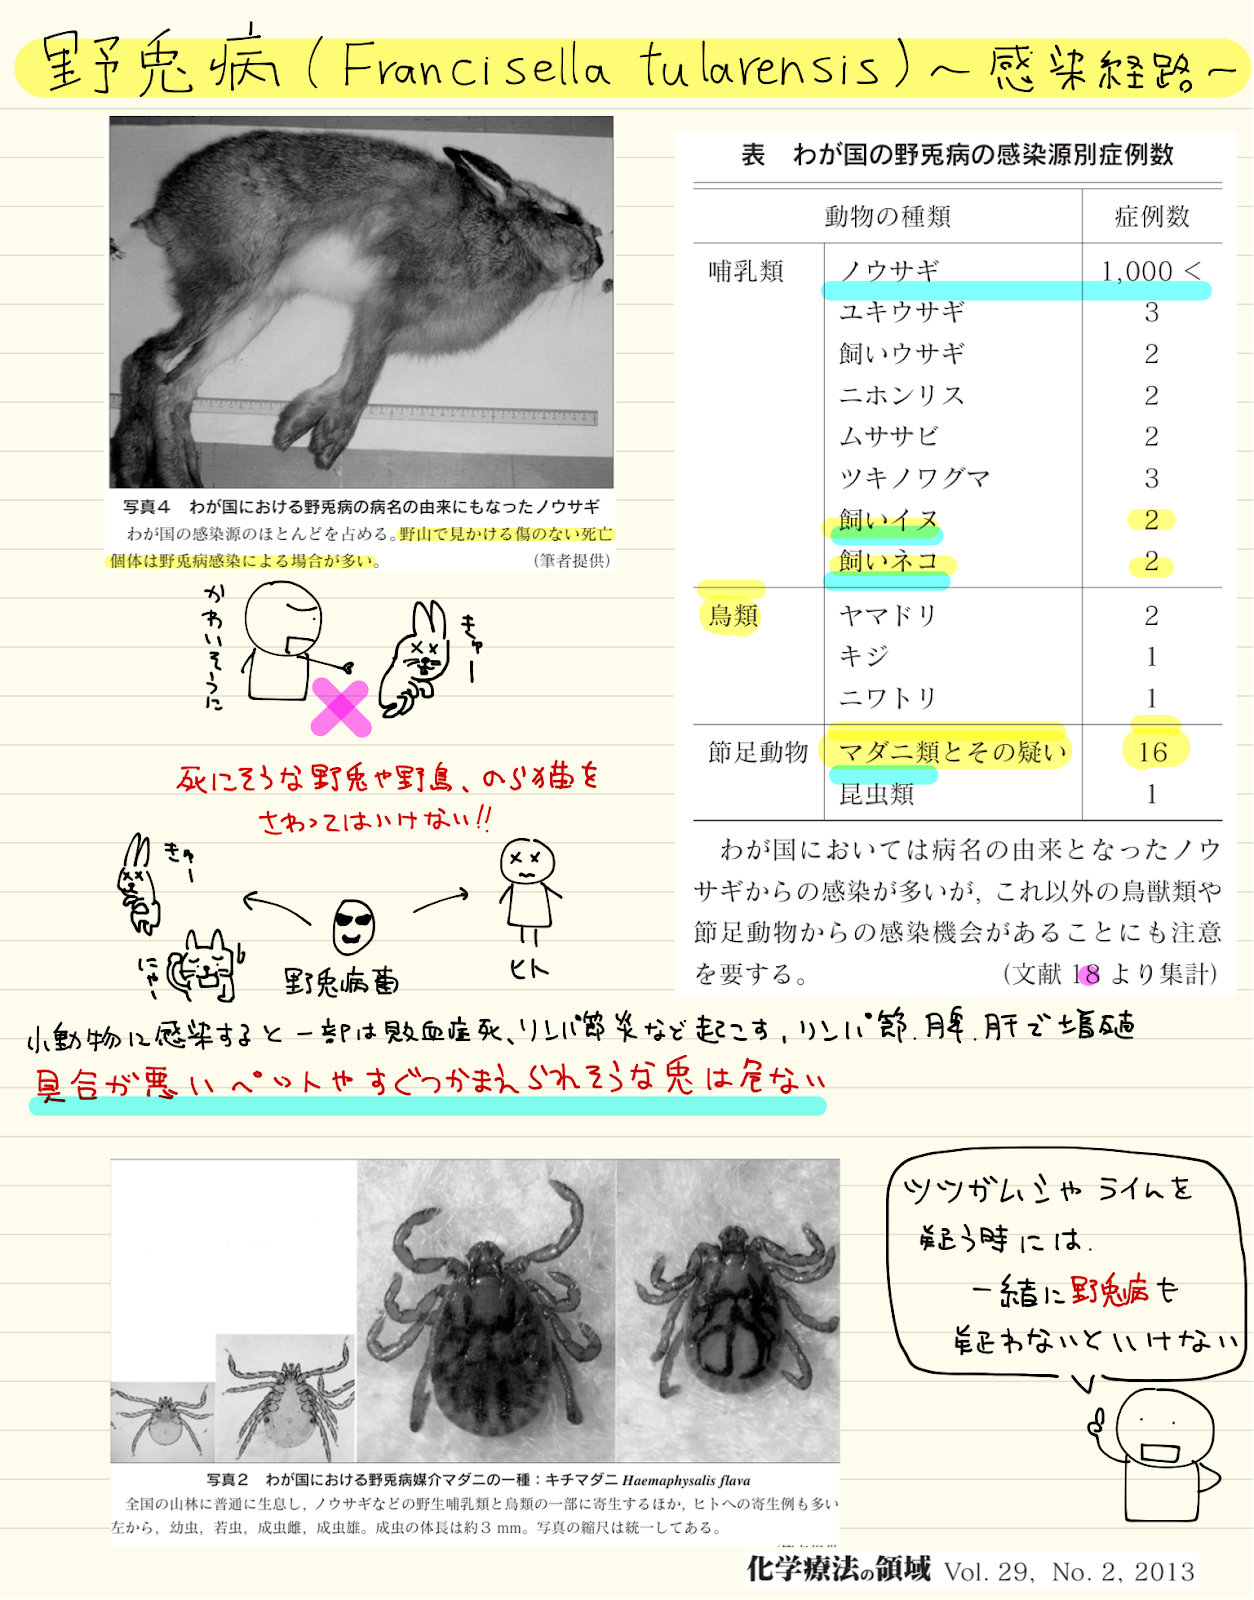 野兎病(Francisella tularensis)～感染経路～
写真4　わが国における野兎病の病名の由来にもなったノウサギ
わが国の感染源のほとんどを占める。野山で見かける傷のない死亡
個体は野兎病感染による場合が多い。　（筆者提供）
かわいそうに
きゅー
死にそうな野兎や野鳥、のら猫を
さわってはいけない!!
きゅー
にゃー
野兎病菌
ヒト
表　わが国の野兎病の感染源別症例数
動物の種類　症例数
哺乳類　ノウサギ　1,000 <
ユキウサギ　3
飼いウサギ　2
ニホンリス　2
ムササビ　2
ツキノワグマ　3
飼いイヌ　2
飼いネコ　2
鳥類　ヤマドリ　2
キジ　1
ニワトリ　1
節足動物　マダニ類とその疑い　16
昆虫類　1
わが国においては病名の由来となったノウ
サギからの感染が多いが，これ以外の鳥獣類や
節足動物からの感染機会があることにも注意
を要する。　（文献 18 より集計）
小動物に感染すると一部は敗血症死、リンパ節炎など起こす，リンパ節．脾．肝で増殖
具合が悪いペットやすぐつかまえられそうな兎は危ない
ツツガムシやライムを
疑う時には．
一緒に野兎病も
疑わないといけない
写真2　わが国における野兎病媒介マダニの一種：キチマダニ Haemaphysalis flava
全国の山林に普通に生息し，ノウサギなどの野生哺乳類と鳥類の一部に寄生するほか，ヒトへの寄生例も多い
左から，幼虫，若虫，成虫雌，成虫雄。成虫の体長は約3 mm。写真の縮尺は統一してある。
化学療法の領域 Vol. 29, No. 2, 2013